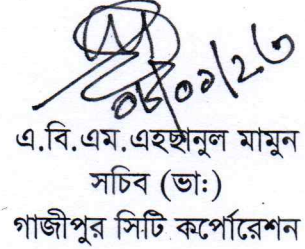 এ.বি.এম.এহছানুল মামুন
সচিব (ভাঃ)
গাজীপুর সিটি কর্পোরেশন